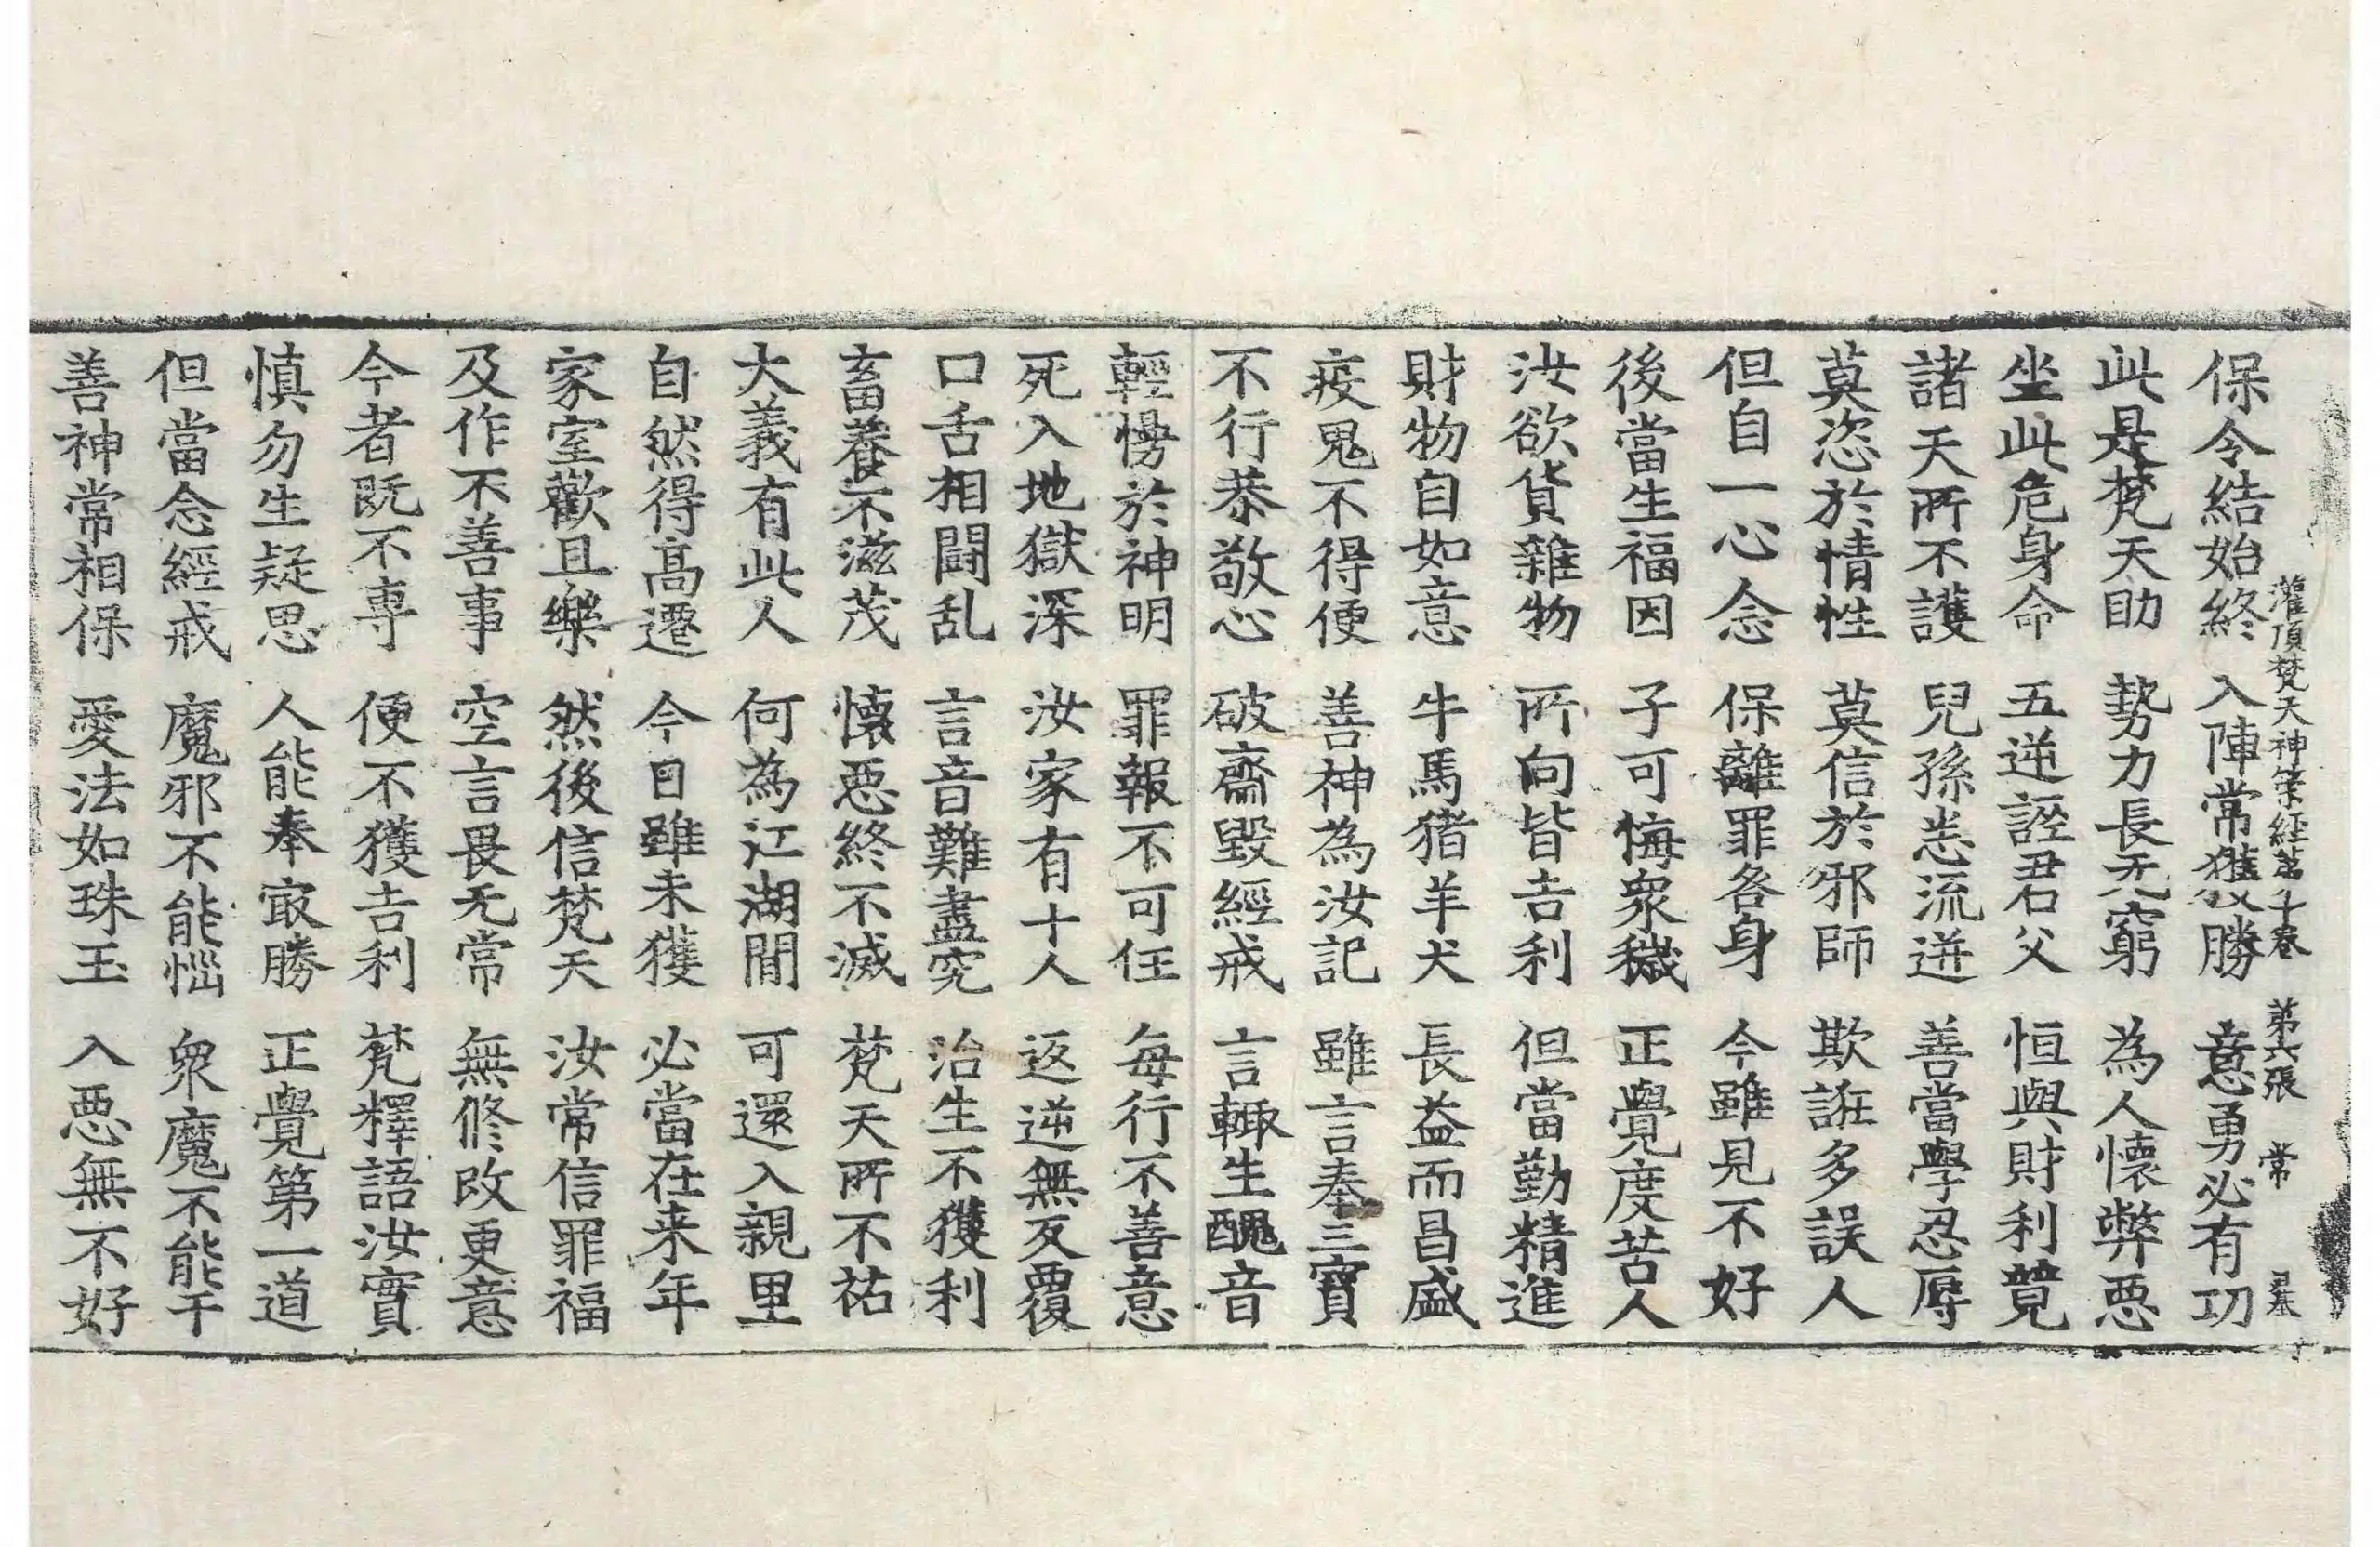 灌頂梵天神策経苐十卷　苐六張　常
保令結始終　入陣常獲勝　意勇必有功
此是梵天助　勢力長无窮　為人懷弊惡
坐此危身命　五逆誣君父　恒與財利競
諸天所不護　兒孫恙流迸　善當學忍辱
莫恣於情性　莫信於邪師　欺誑多誤人
但自一心念　保離罪咎身　今雖見不好
後當生福因　子可悔衆穢　正覺度苦人
汝欲貨雜物　所向皆吉利　但當勤精進
財物自如意　牛馬猪羊犬　長益而昌盛
疫鬼不得便　善神為汝記　雖言奉三寶
不行恭敬心　破齋毀經戒　言輙生醜音
輕慢於神明　罪報不可任　每行不善意
死入地獄深　汝家有十人　返逆無反覆
口舌相鬪乱　言音難盡究　治生不獲利
畜養不滋茂　懷惡終不滅　梵天所不祐
大義有此人　何為江湖間　可還入親里
自然得高遷　今日雖未獲　必當在来年
家室歡且樂　然後信梵天　汝常信罪福
及作不善事　空言畏无常　無修改更意
今者既不専　便不獲吉利　梵釋語汝實
慎勿生疑思　人能奉㝡勝　正覺第一道
但當念經戒　魔邪不能惱　衆魔不能干
善神常相保　愛法如珠玉　入惡無不好